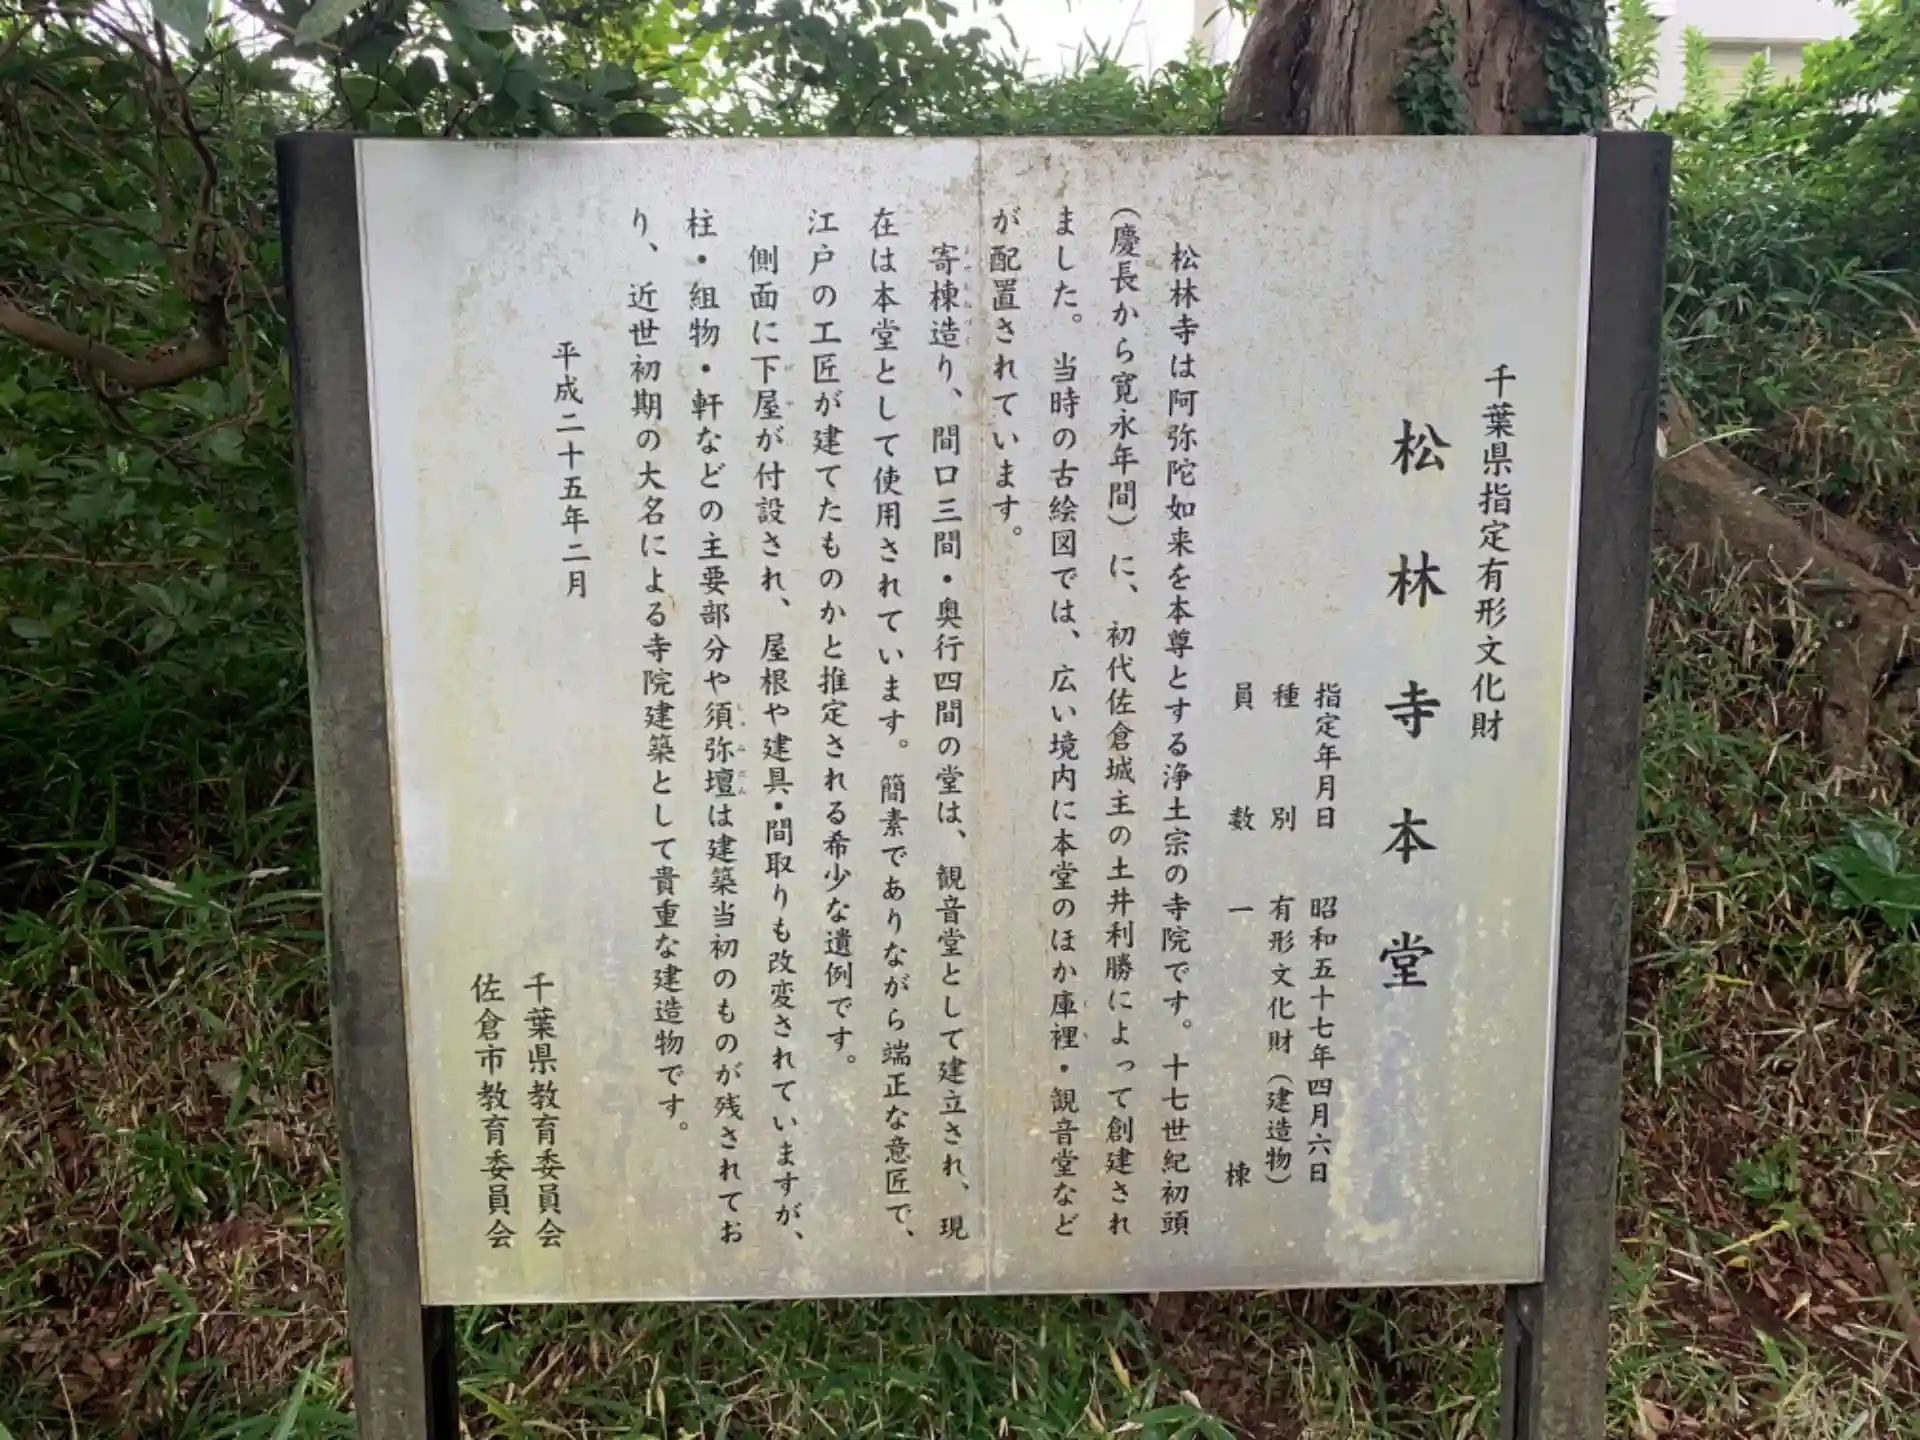 千葉県指定有形文化財
松林寺本堂
指定年月日 昭和五十七年四月六日
種別 有形文化財（建造物）
員数 一棟
松林寺は阿弥陀如来を本尊とする浄土宗の寺院です。十七世紀初頭
（慶長から寛永年間）に、初代佐倉城主の土井利勝によって創建され
ました。当時の古絵図では、広い境内に本堂のほか庫裡・観音堂など
が配置されています。
寄棟造り、間口三間・奥行四間の堂は、観音堂として建立され、現
在は本堂として使用されています。簡素でありながら端正な意匠で、
江戸の工匠が建てたものかと推定される希少な遺例です。
側面に下屋が付設され、屋根や建具・間取りも改変されていますが、
柱・組物・軒などの主要部分や須弥壇は建築当初のものが残されてお
り、近世初期の大名による寺院建築として貴重な建造物です。
平成二十五年二月
千葉県教育委員会
佐倉市教育委員会